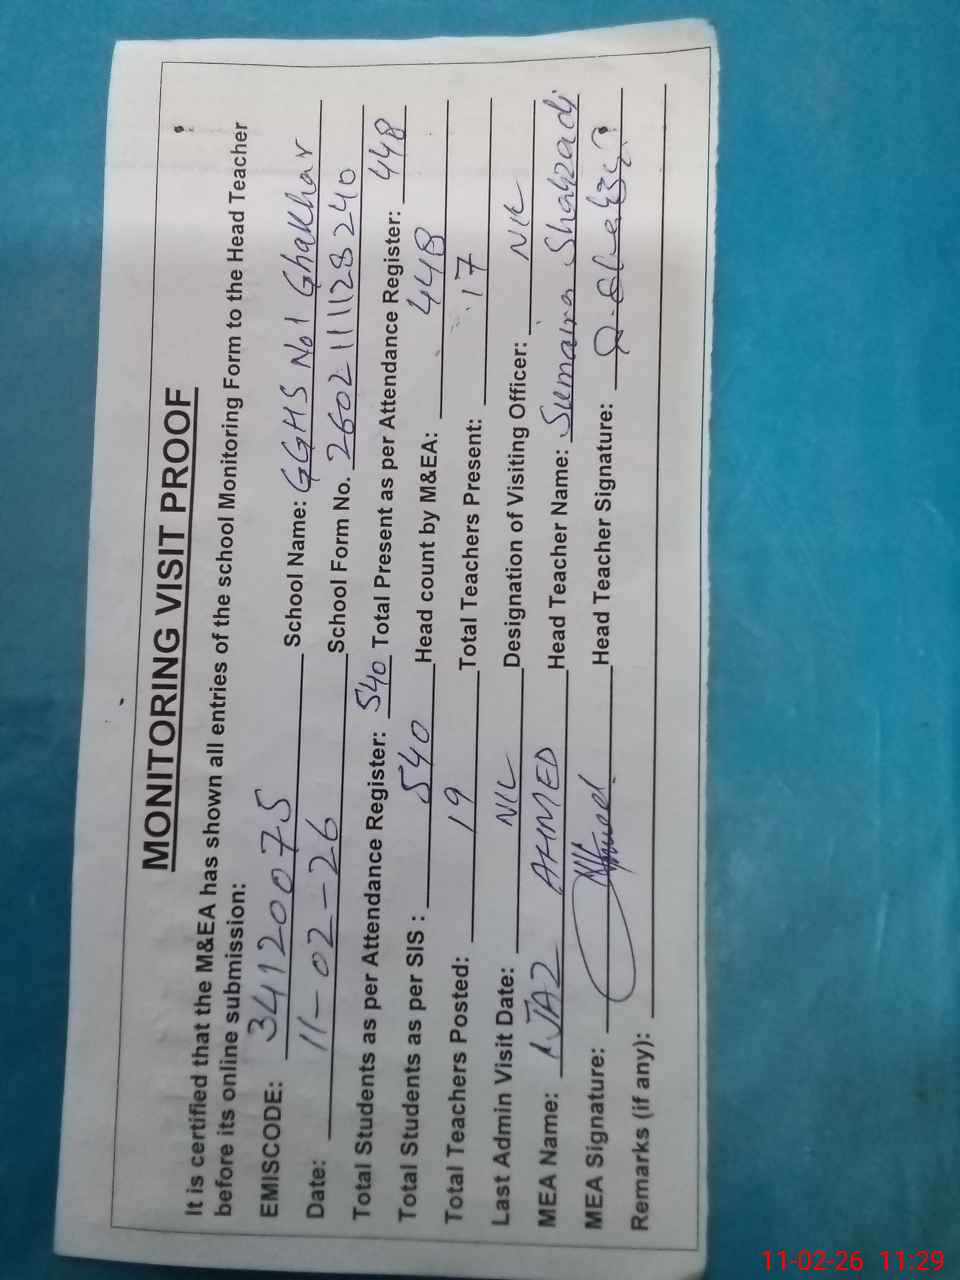 MONITORING VISIT PROOF
It is certified that the M&EA has shown all entries of the school Monitoring Form to the Head Teacher
before its online submission:
EMISCODE: 34120075 School Name: GGHS No 1 Ghakhar
Date: 11-02-26 School Form No. 26021111128240
Total Students as per Attendance Register: 540 Total Present as per Attendance Register: 448
Total Students as per SIS : 540 Head count by M&EA: 448
Total Teachers Posted: 19 Total Teachers Present: 17
Last Admin Visit Date: NIL Designation of Visiting Officer: NIL
MEA Name: AJAZ AHMED Head Teacher Name: Sumaira Shahzadi
MEA Signature: Head Teacher Signature:
Remarks (if any):
11-02-26 11:29